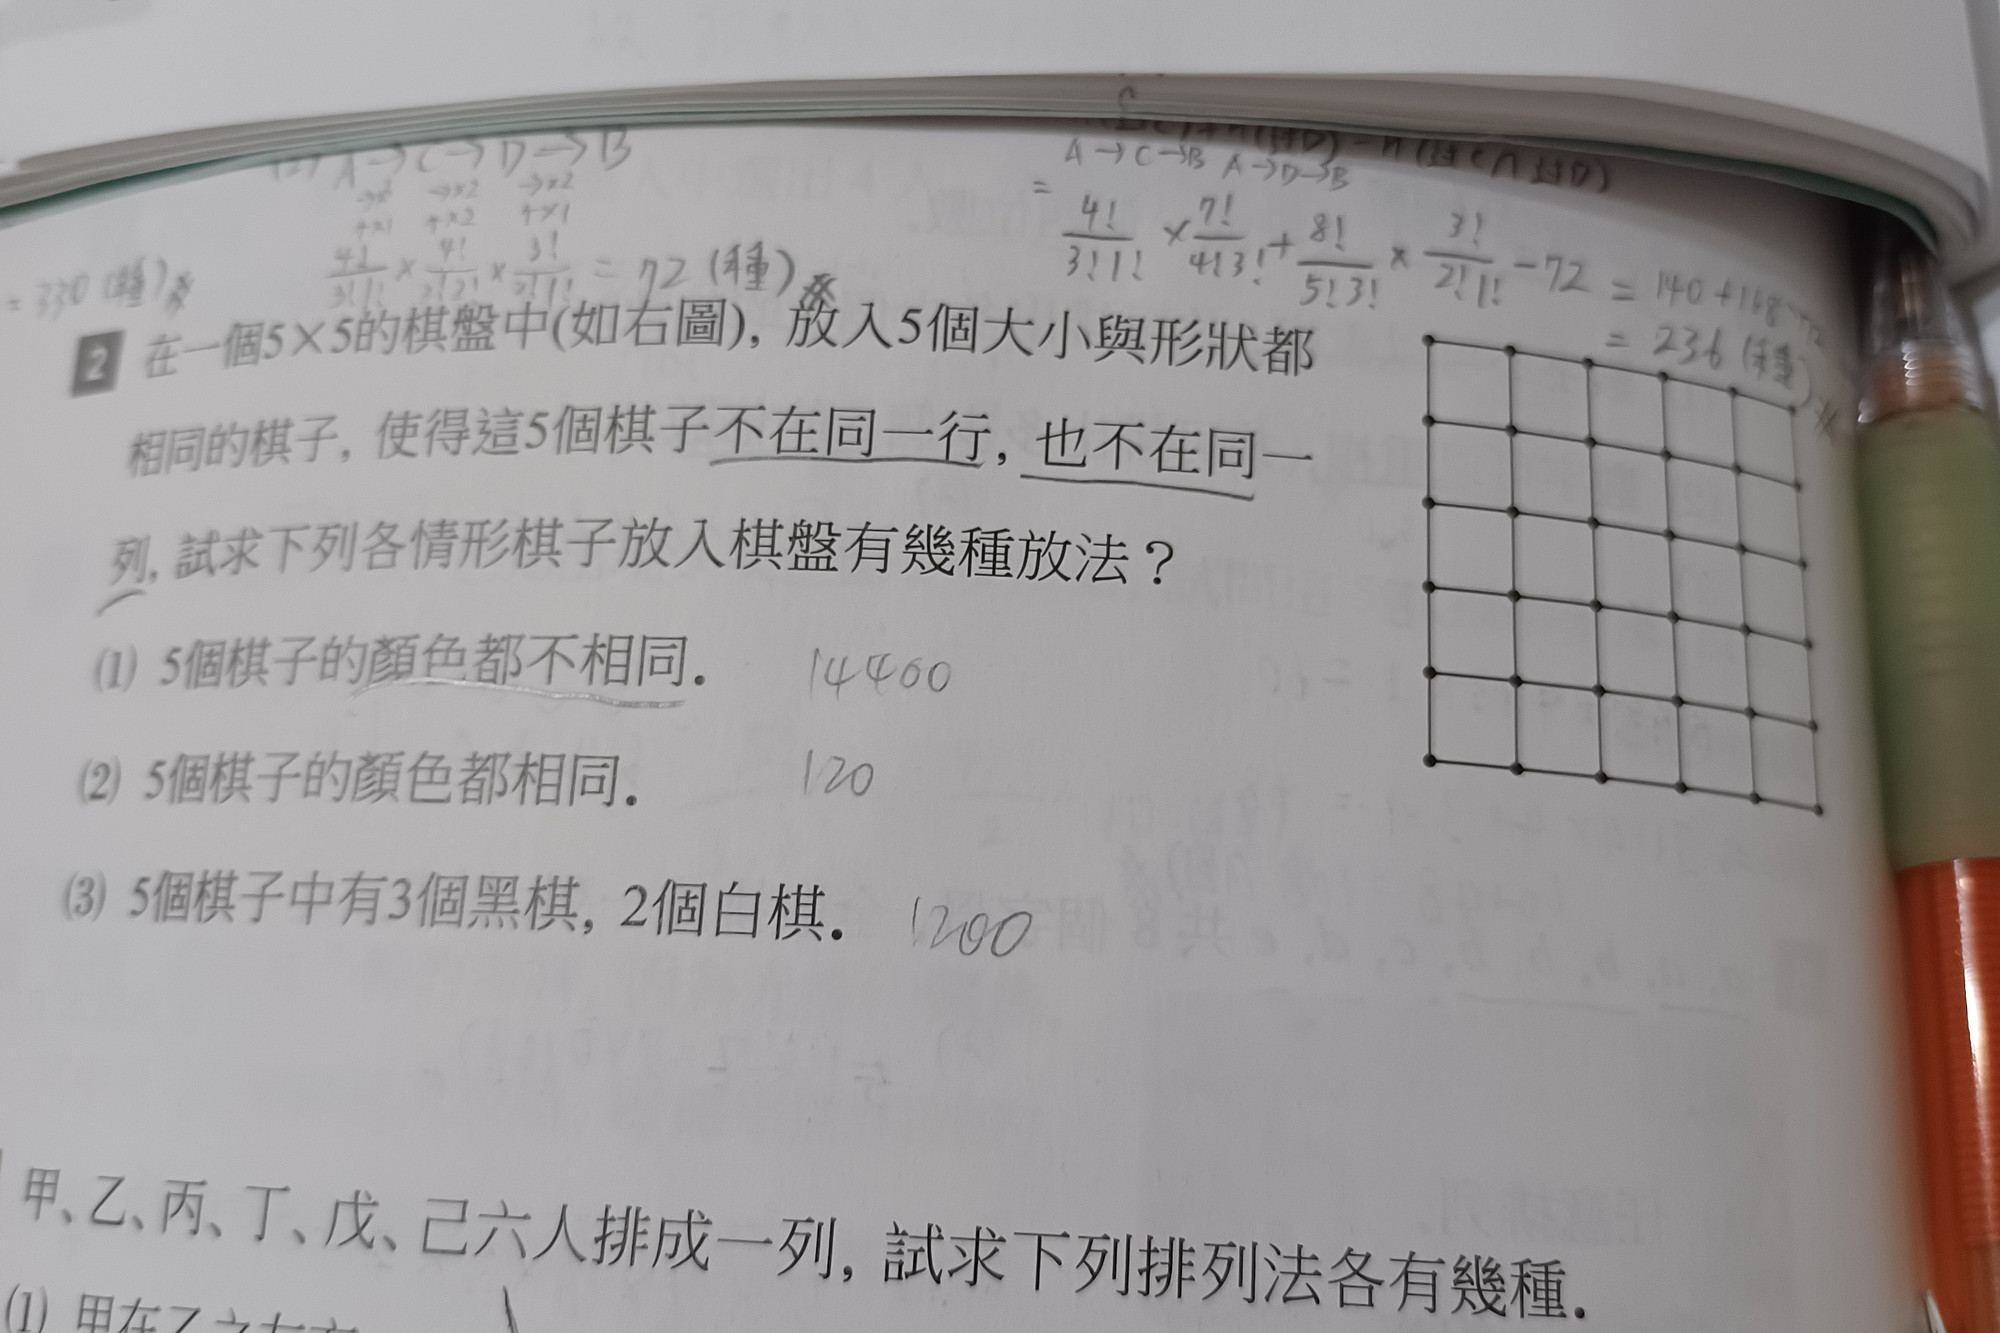 (2) A→C→D→B
→×3 →×2 →×2
↑×1 ↑×2 ↑×1
= 330 (種)
4!/3!1! × 4!/2!2! × 3!/2!1! = 72 (種)
A→C→B A→D→B
= 4!/3!1! × 7!/4!3! + 8!/5!3! × 3!/2!1! - 72 = 140 + 168 - 72
= 236 (種)
2 在一個5×5的棋盤中(如右圖), 放入5個大小與形狀都
相同的棋子, 使得這5個棋子不在同一行, 也不在同一
列, 試求下列各情形棋子放入棋盤有幾種放法？
(1) 5個棋子的顏色都不相同. 14400
(2) 5個棋子的顏色都相同. 120
(3) 5個棋子中有3個黑棋, 2個白棋. 1200
甲、乙、丙、丁、戊、己六人排成一列, 試求下列排列法各有幾種.
(1) 甲在乙之